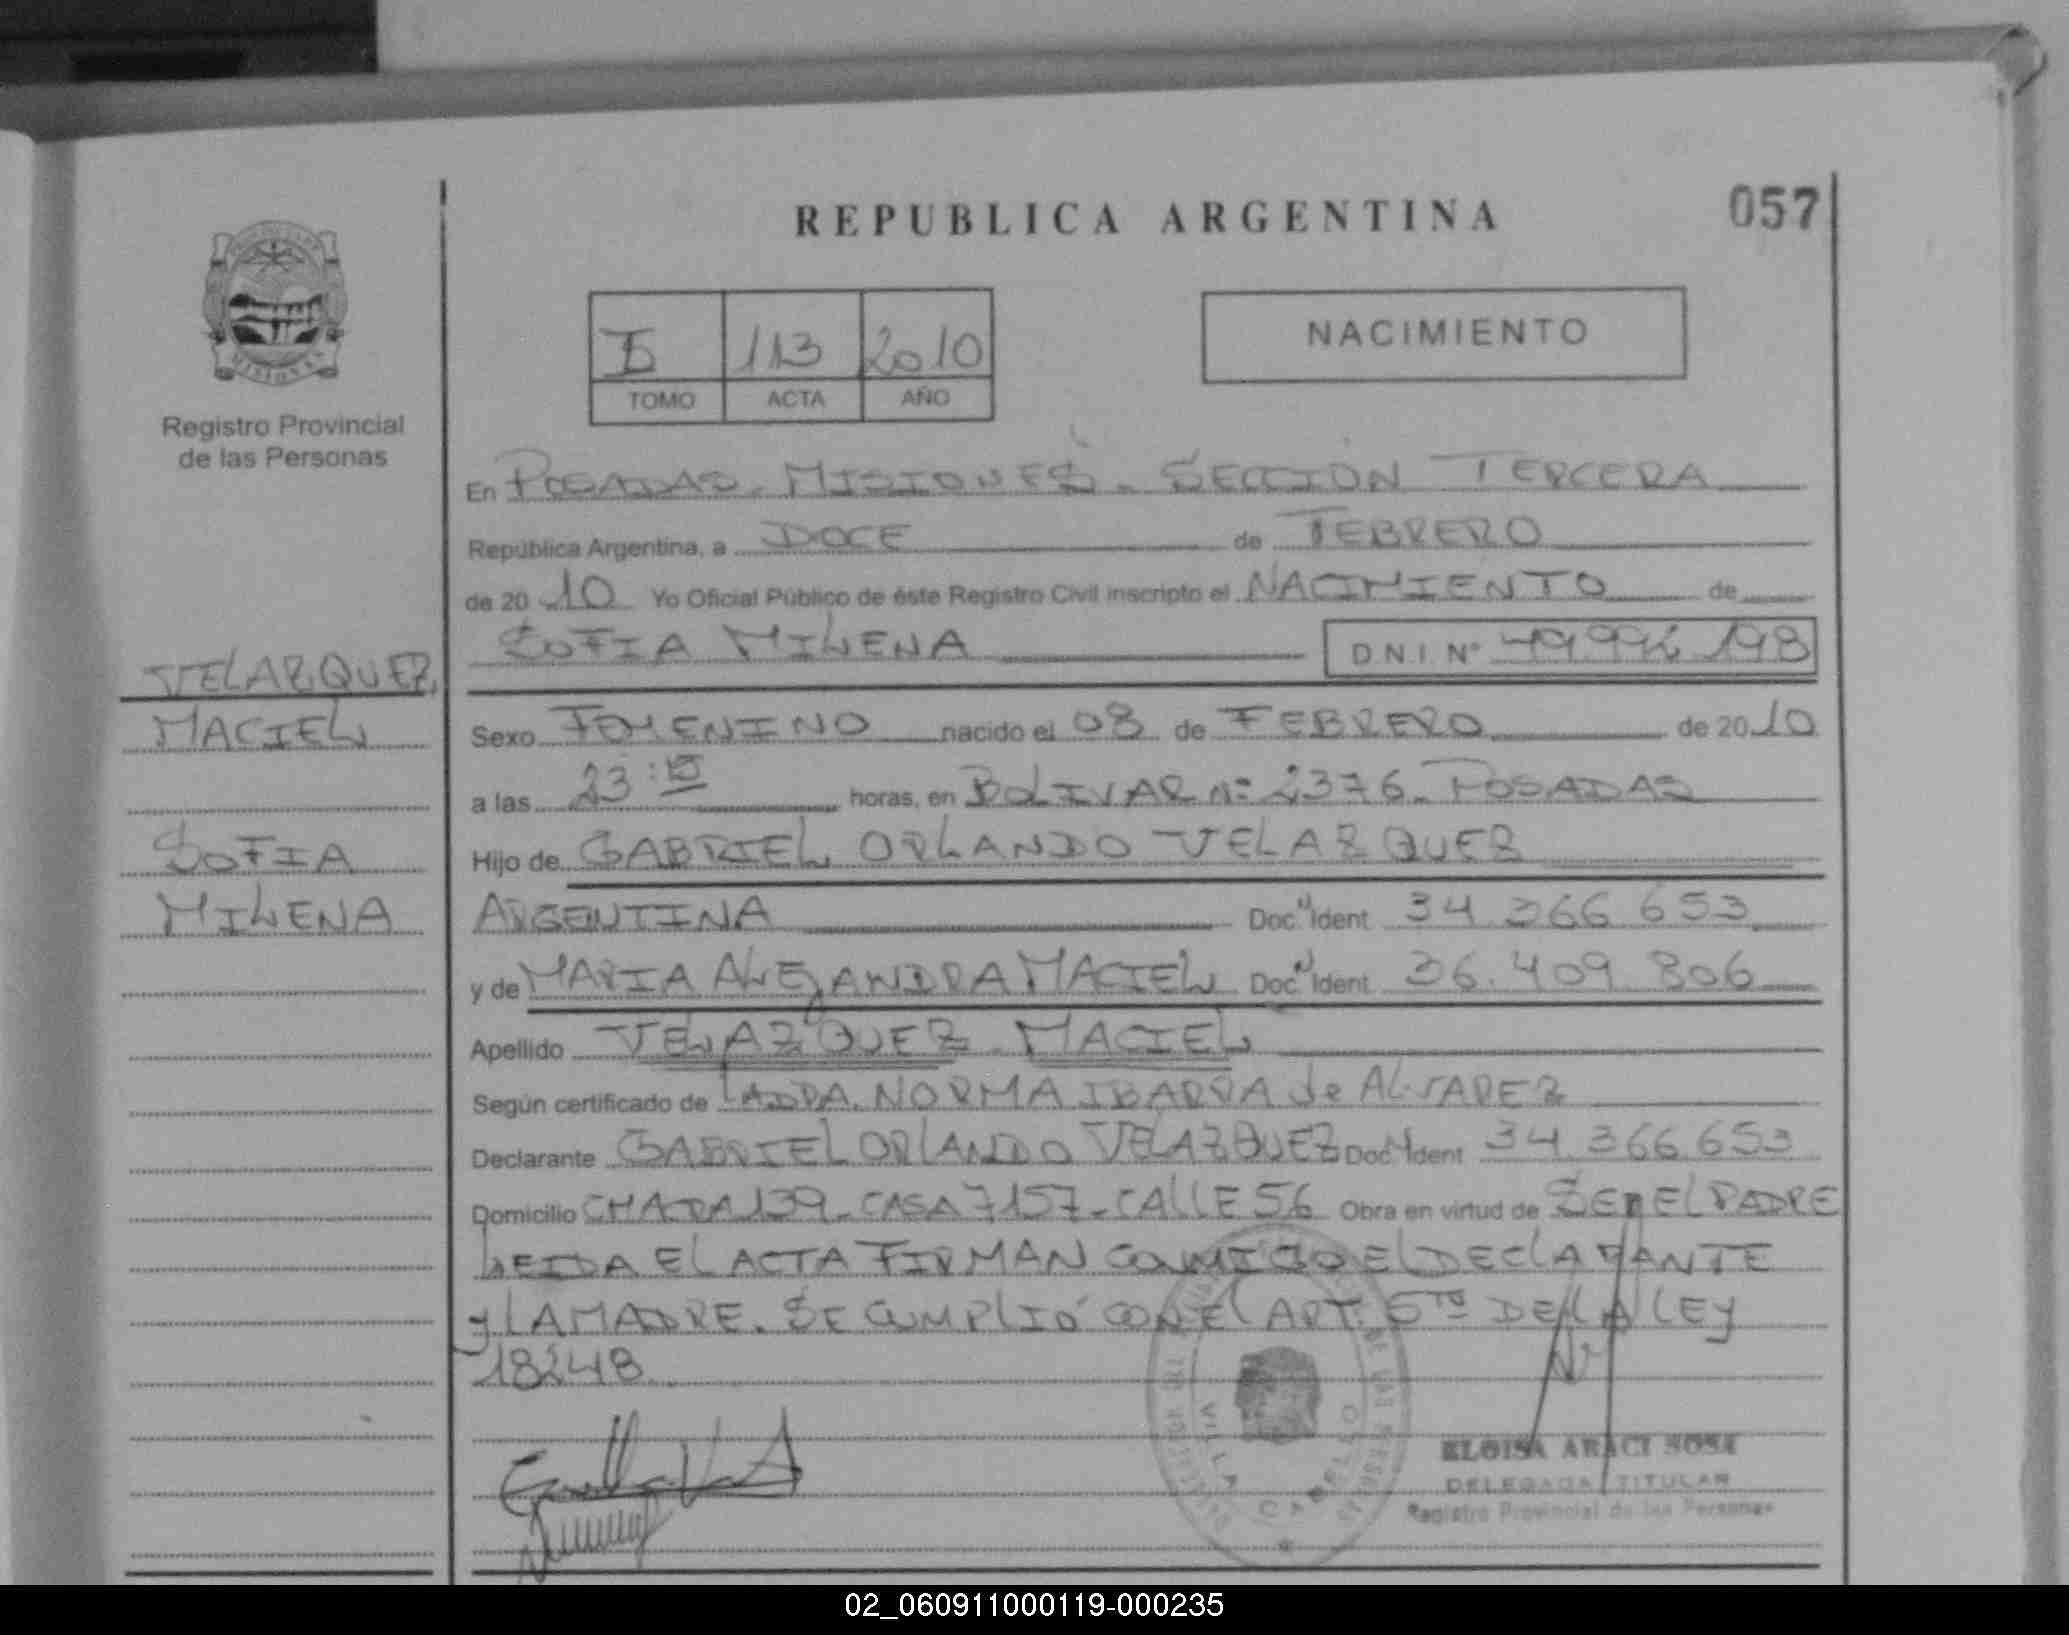 REPUBLICA ARGENTINA
057
113 2010
TOMO ACTA AÑO
NACIMIENTO
MISIONES
Registro Provincial
de las Personas
En POSADAS - MISIONES - SECCIÓN TERCERA
República Argentina, a DOCE de FEBRERO
de 2010 Yo Oficial Público de éste Registro Civil inscripto el NACIMIENTO de
SOFIA MILENA D.N.I. Nº
VELAZQUEZ
MACIEL
SOFIA
MILENA
Sexo FEMENINO nacido el 08 de FEBRERO de 2010
a las horas, en BOLIVAR Nº 2376 - POSADAS
Hijo de GABRIEL ORLANDO VELAZQUEZ
ARGENTINA Doc. Ident 34.366.653
y de MARIA ALEJANDRA MACIEL Doc. Ident 36.409.806
Apellido VELAZQUEZ - MACIEL
Según certificado de NORMA IBARRA de ALVAREZ
Declarante GABRIEL ORLANDO VELAZQUEZ Doc. Ident 34.366.653
Domicilio CHACRA 139 - CASA 7157 - CALLE 56 Obra en virtud de SER EL PADRE
LEIDA EL ACTA FIRMAN CONMIGO EL DECLARANTE
y LA MADRE. SE CUMPLIÓ CON EL ART. 5TO DE LA LEY
18248
VILLA CABELLO
ELOISA ARACI SOSA
DELEGADA TITULAR
Registro Provincial de las Personas
02_060911000119-000235